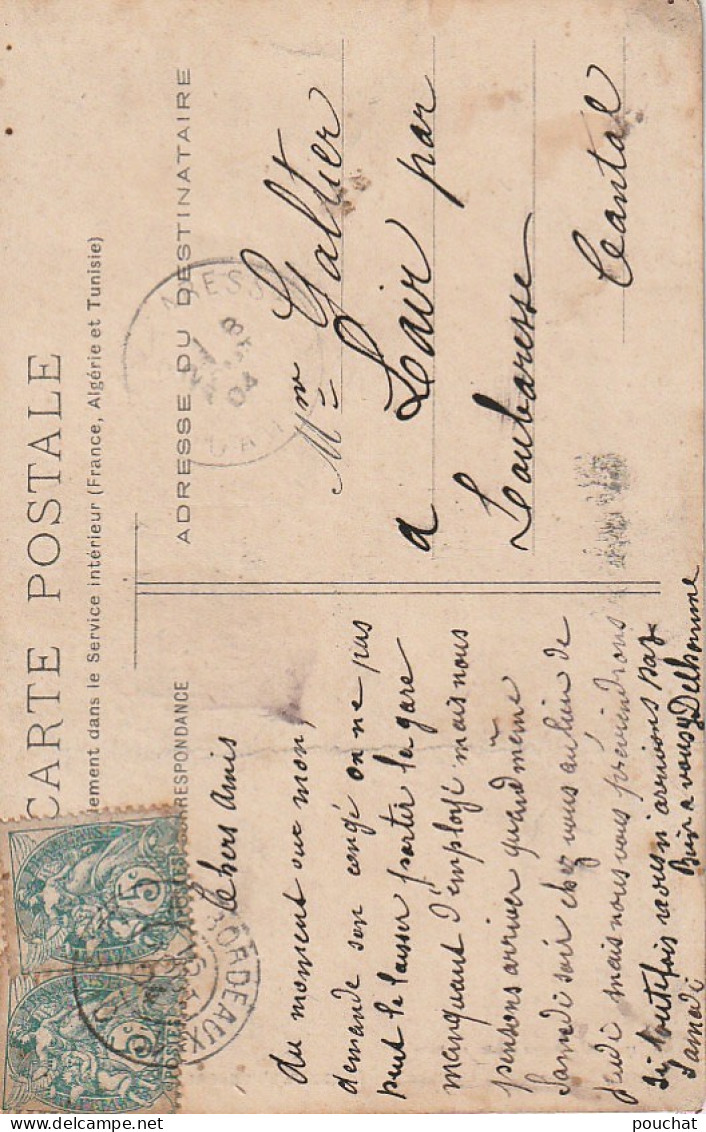 CARTE POSTALE
dement dans le Service intérieur (France, Algérie et Tunisie)
RESPONDANCE
ADRESSE DU DESTINATAIRE
5c
5c
BORDEAUX
04
Chers Amis
Au moment ou mon,
demande son congé on ne pas
peut le laisser partir la gare
manquant d'employé mais nous
pensons arriver quand même
Samedi soir chez vous au lieu de
jeudi mais nous vous préviendrons
si toutefois nous n'arrivions pas
Samedi Bien a vous Delhomme
Mme Galtier
a Lair par
Loubaresse
Cantal
pouchat